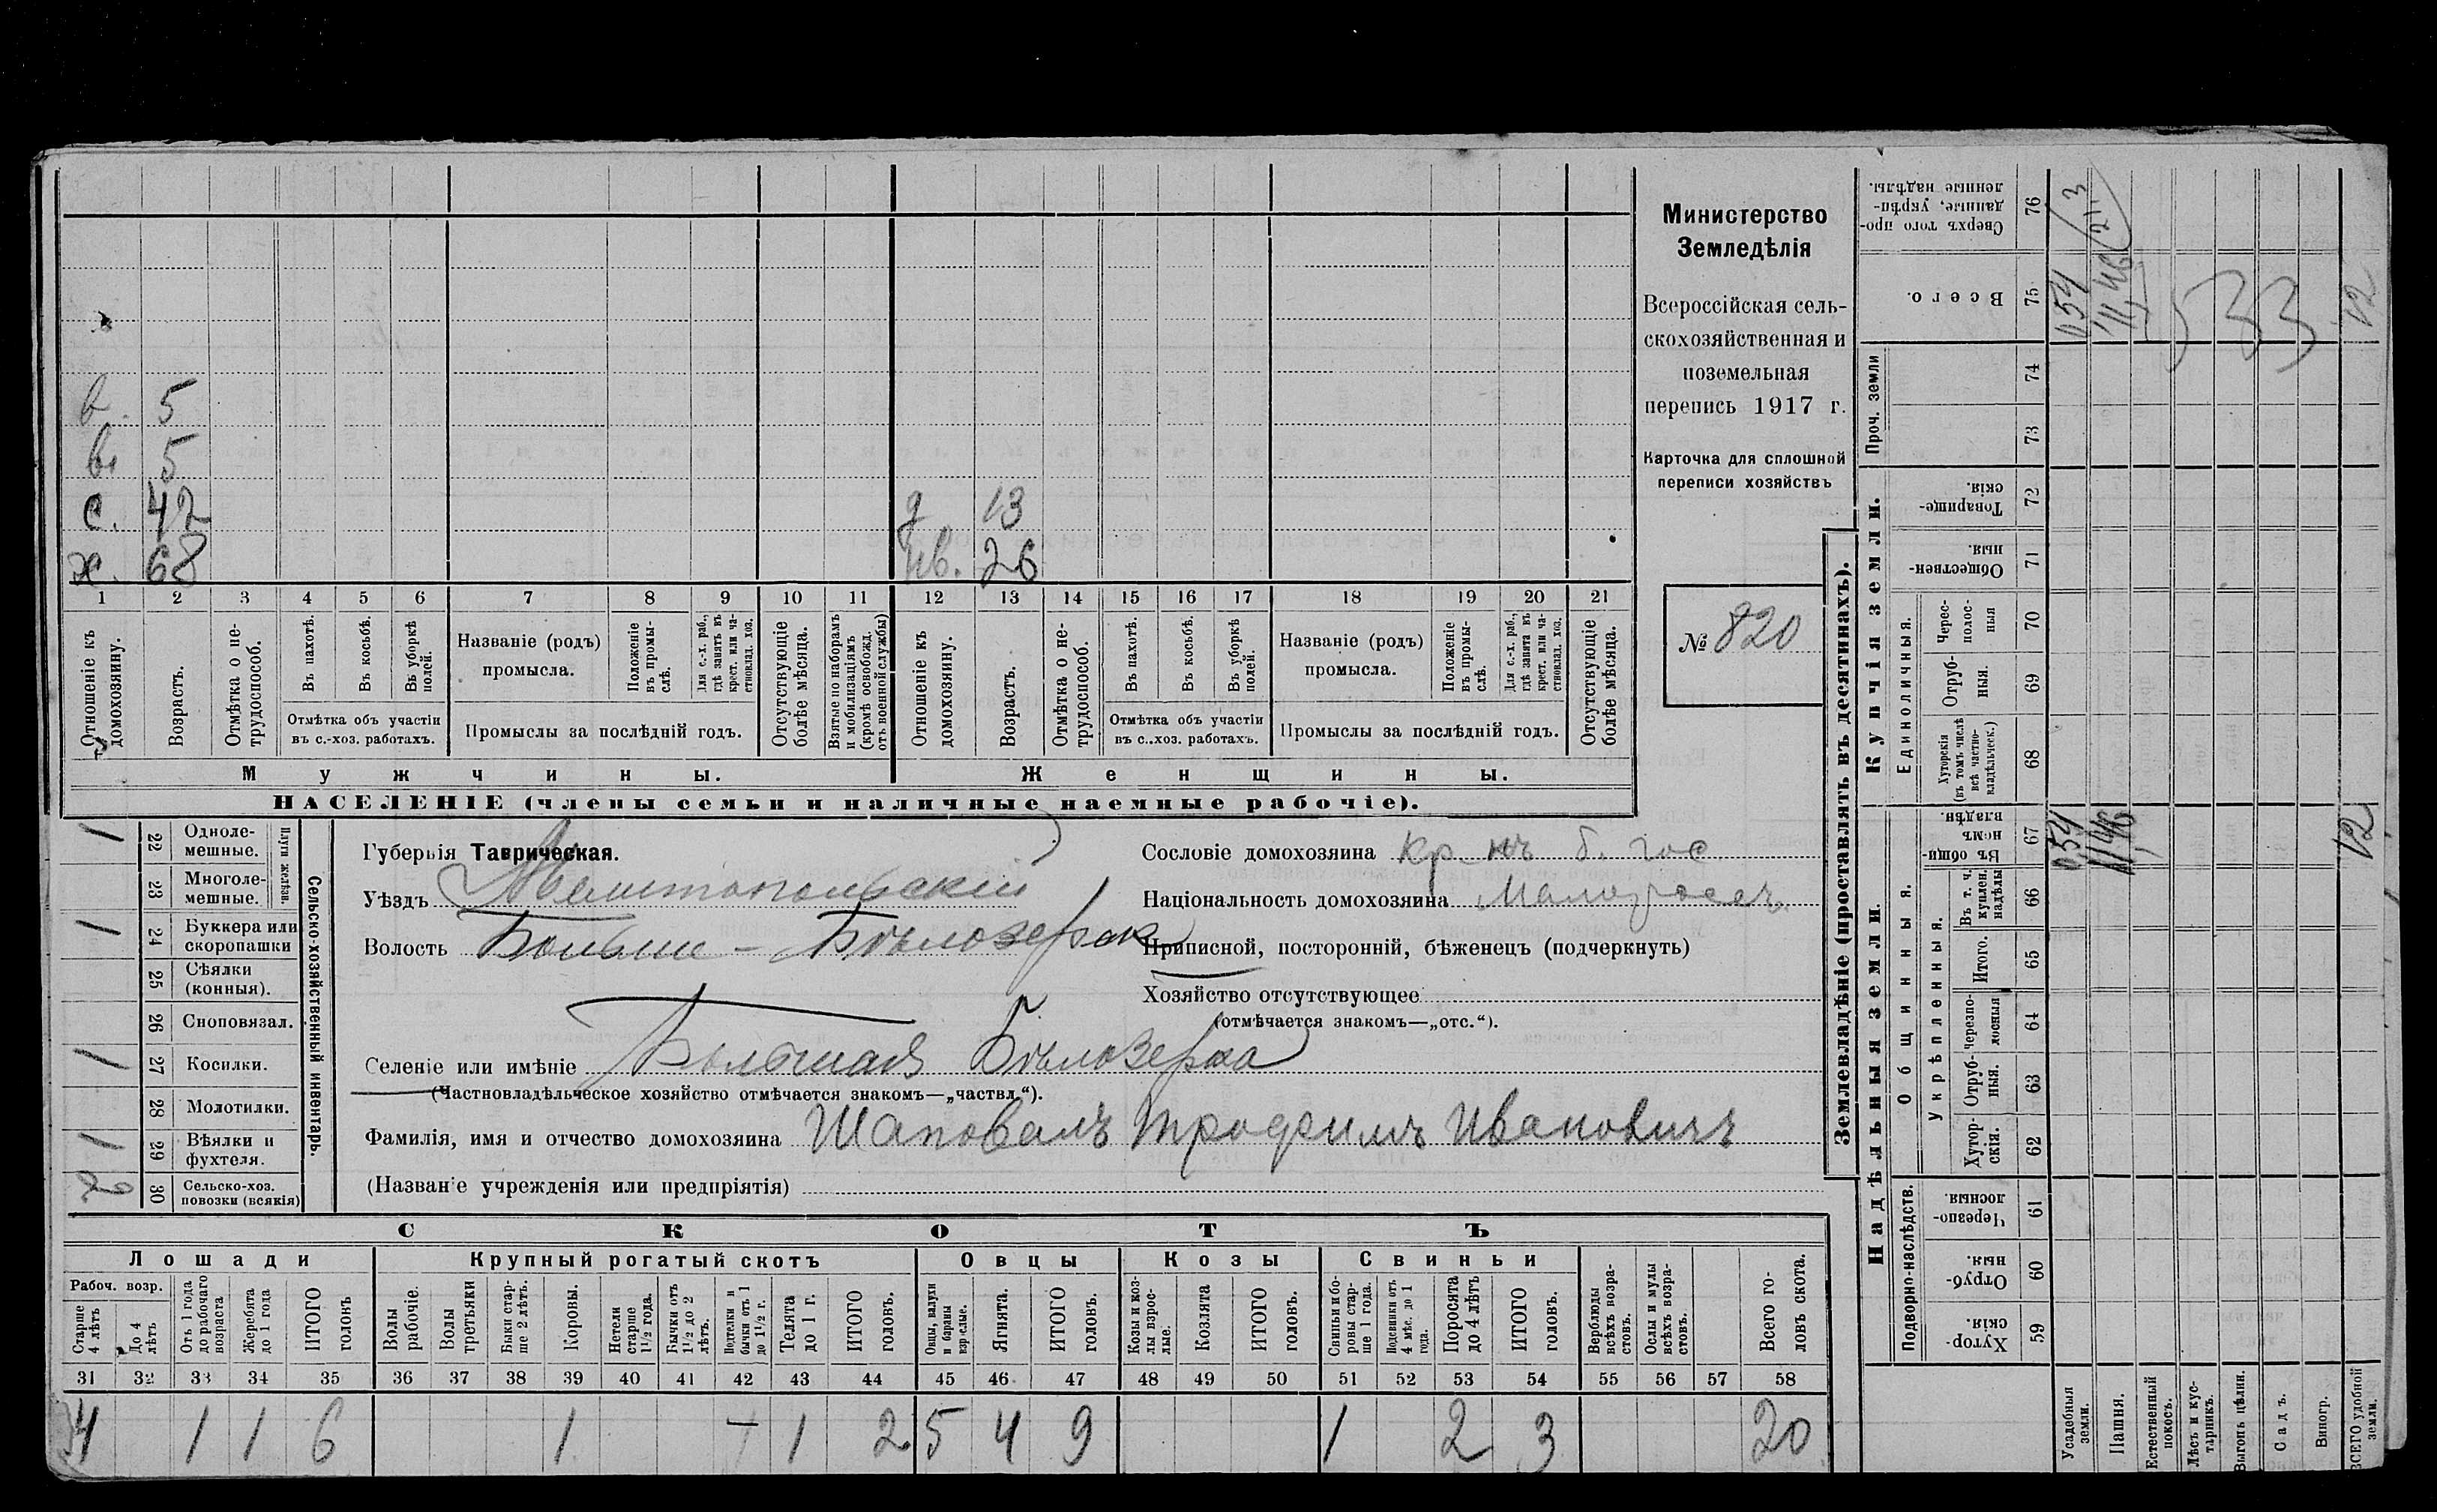 в. 5
в. 5
с. 42 д 13
х. 68 нв. 26
1 2 3 4 5 6 7 8 9 10 11 12 13 14 15 16 17 18 19 20 21
Отношеніе къ домохозяину.
Возрастъ.
Отмѣтка о не-
трудоспособ.
Въ пахотѣ.
Въ косьбѣ.
Въ уборкѣ полей.
Отмѣтка объ участіи
въ с.-хоз. работахъ.
Названіе (родъ)
промысла.
Положеніе въ промы-
слѣ.
Для с.-х. раб., гдѣ занятъ въ крест. или ча-
стновлад. хоз.
Промыслы за послѣдній годъ.
Отсутствующіе болѣе мѣсяца.
Взятые по наборамъ и мобилизаціямъ (кромѣ освобожд. отъ военной службы)
Отношеніе къ домохозяину.
Возрастъ.
Отмѣтка о не-
трудоспособ.
Въ пахотѣ.
Въ косьбѣ.
Въ уборкѣ полей.
Отмѣтка объ участіи
въ с.-хоз. работахъ.
Названіе (родъ)
промысла.
Положеніе въ промы-
слѣ.
Для с.-х. раб., гдѣ занятъ въ крест. или ча-
стновлад. хоз.
Промыслы за послѣдній годъ.
Отсутствующіе болѣе мѣсяца.
Мужчины. Женщины.
НАСЕЛЕНІЕ (члены семьи и наличные наемные рабочіе).
Министерство
Земледѣлія
Всероссійская сель-
скохозяйственная и
поземельная
перепись 1917 г.
Карточка для сплошной
переписи хозяйствъ
№ 820
Сельско-хозяйственный инвентарь.
Плуги желѣзн.
1 22 Одноле-
мешные.
23 Многоле-
мешные.
1 24 Буккера или
скоропашки
25 Сѣялки
(конныя).
26 Сноповязал.
1 27 Косилки.
28 Молотилки.
1 29 Вѣялки и
фухтеля.
30 Сельско-хоз.
повозки (всякія)
Губернія Таврическая.
Уѣздъ Мелитопольскій
Волость Больше-Бѣлозерск
Селеніе или имѣніе Большая Бѣлозерка
(Частновладѣльческое хозяйство отмѣчается знакомъ—„частвл.“).
Фамилія, имя и отчество домохозяина Шаповалъ Трофимъ Ивановичъ
(Названіе учрежденія или предпріятія)
Сословіе домохозяина кр-нъ б. гос
Національность домохозяина Малороссъ.
Приписной, посторонній, бѣженецъ (подчеркнуть)
Хозяйство отсутствующее
(отмѣчается знакомъ—„отс.“).
СКОТЪ
Лошади Крупный рогатый скотъ Овцы Козы Свиньи
Рабоч. возр.
Старше 4 лѣтъ
До 4 лѣтъ
Отъ 1 года до рабочаго возраста
Жеребята до 1 года
ИТОГО головъ
Волы рабочіе.
Волы третьяки
Быки стар-
ше 2 лѣтъ.
Коровы.
Нетели старше 1½ года.
Бычки отъ 1½ до 2 лѣтъ.
Подтелки и бычки отъ 1 до 1½ г.
Телята до 1 г.
ИТОГО головъ.
Овцы, валухи и бараны взрослые.
Ягнята.
ИТОГО головъ.
Козы и коз-
лы взрос-
лые.
Козлята
ИТОГО головъ.
Свиньи и бо-
ровы стар-
ше 1 года.
Подсвинки отъ 4 мѣс. до 1 года.
Поросята до 4 лѣтъ
ИТОГО головъ.
Верблюды всѣхъ возра-
стовъ.
Ослы и мулы всѣхъ возра-
стовъ.
Всего го-
ловъ скота.
31 32 33 34 35 36 37 38 39 40 41 42 43 44 45 46 47 48 49 50 51 52 53 54 55 56 57 58
4 1 1 6 1 1 2 5 4 9 1 2 3 20
Землевладѣніе (проставлять въ десятинахъ).
Надѣльныя земли. Купчія земли. Проч. земли
Сверхъ того про-
данные, укрѣп-
ленные надѣлы.
76
Всего.
75
74
73
Товарище-
скія.
72
Обществен-
ныя.
71
Единоличныя.
Черес-
полос-
ныя
70
Отруб-
ныя.
69
Хуторскія (въ томъ числѣ всѣ частно-
владѣльческ.)
68
Общинныя.
Въ общи-
номъ владѣн.
67
Въ т. ч. куплен. надѣлы
66
Укрѣпленныя.
Итого.
65
Черезпо-
лосныя
64
Отруб-
ныя.
63
Хутор-
скія.
62
Подворно-наслѣдств.
Черезпо-
лосныя
61
Отруб-
ныя.
60
Хутор-
скія.
59
Усадебныя земли.
Пашня.
Естественный покосъ.
Лѣсъ и кус-
тарникъ.
Выгонъ цѣлин.
Садъ.
Виногр.
ВСЕГО удобной земли.
0,54
11,46
12
0,54
11,46
21.3
533
12